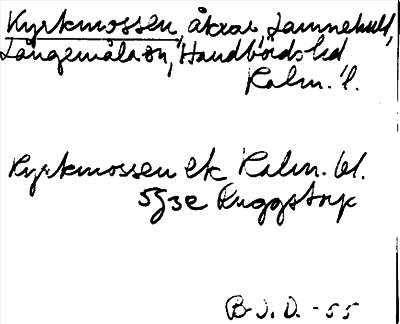 Kyrkmossen, åkrar, Jamnehult,
Långemåla sn, Handbörds hd
Kalm. l.
Kyrkmossen ek Kalm. bl.
5g3e Ruggstorp
B.J.D. -55